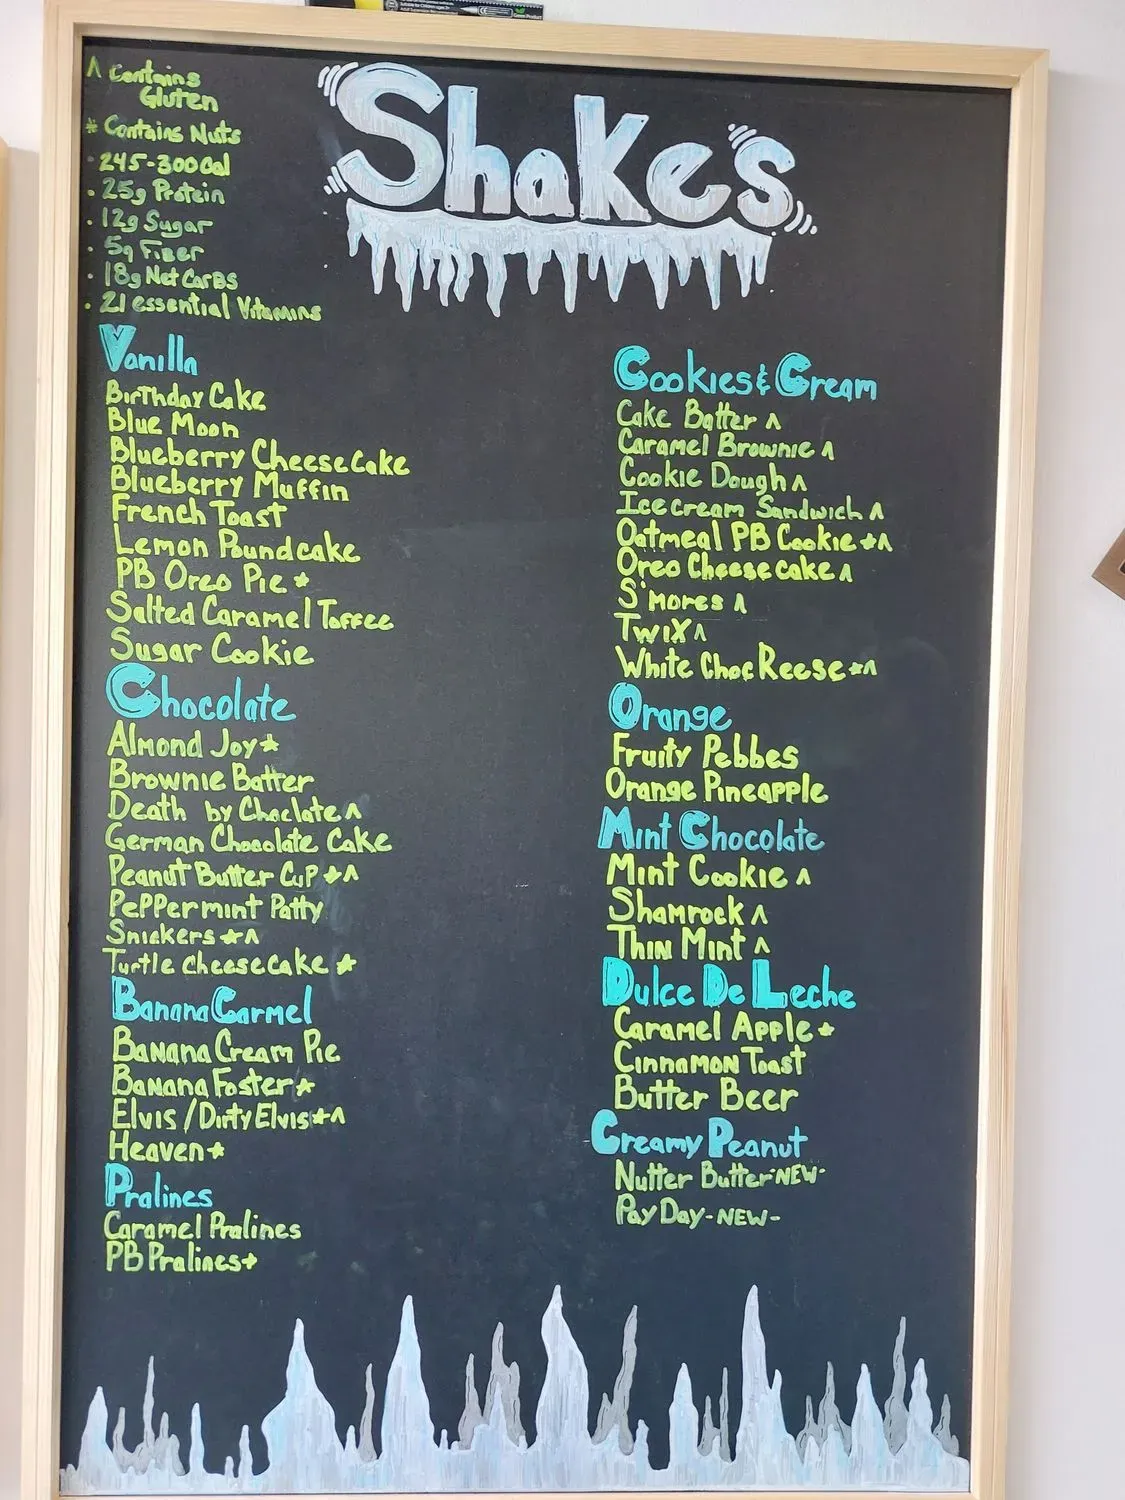 ^ Contains
Gluten
* Contains Nuts
· 245-300 Cal
· 25g Protein
· 12g Sugar
· 5g Fiber
· 18g Net Carbs
· 21 essential Vitamins
Shakes
Vanilla
Birthday Cake
Blue Moon
Blueberry Cheesecake
Blueberry Muffin
French Toast
Lemon Poundcake
PB Oreo Pie *
Salted Caramel Toffee
Sugar Cookie
Chocolate
Almond Joy *
Brownie Batter
Death by Choclate ^
German Chocolate Cake
Peanut Butter Cup *^
Peppermint Patty
Snickers *^
Turtle Cheesecake *
Banana Carmel
Banana Cream Pie
Banana Foster *
Elvis / Dirty Elvis *^
Heaven *
Pralines
Caramel Pralines
PB Pralines *
Cookies & Cream
Cake Batter ^
Caramel Brownie ^
Cookie Dough ^
Icecream Sandwich ^
Oatmeal PB Cookie *^
Oreo Cheesecake ^
S'mores ^
Twix ^
White Choc Reese *^
Orange
Fruity Pebbes
Orange Pineapple
Mint Chocolate
Mint Cookie ^
Shamrock ^
Thin Mint ^
Dulce De Leche
Caramel Apple *
Cinnamon Toast
Butter Beer
Creamy Peanut
Nutter Butter -NEW-
Pay Day -NEW-